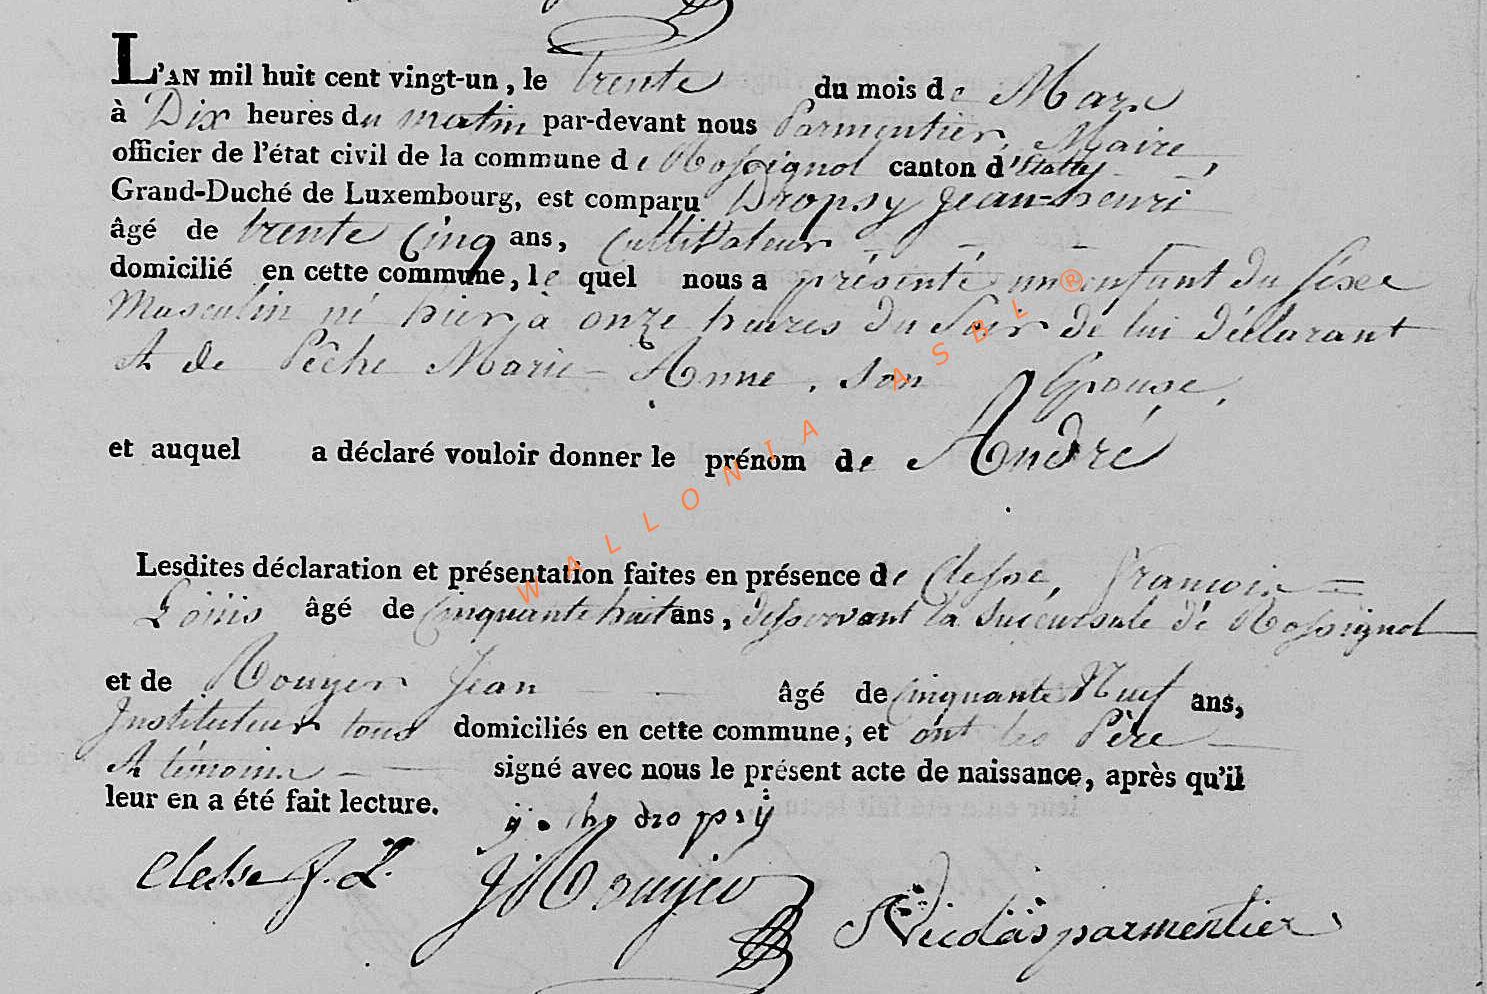 L'AN mil huit cent vingt-un, le trente du mois de Mars
à Dix heures du matin par-devant nous Parmentier, Maire,
officier de l'état civil de la commune de Rossignol canton d'Etalle
Grand-Duché de Luxembourg, est comparu Dropsy jean-henri
âgé de trente Cinq ans, Cultivateur
domicilié en cette commune, lequel nous a présenté un enfant du séxe
Masculin né hier à onze heures du Soir de lui déclarant
et de Pêche Marie-Anne, son Epouse,
et auquel a déclaré vouloir donner le prénom de André
Lesdites déclaration et présentation faites en présence de Clesse, François
Louis âgé de Cinquante huit ans, desservant la Succursale de Rossignol
et de Rouyer Jean âgé de Cinquante Neuf ans,
Instituteur tous domiciliés en cette commune, et ont les Père
et témoins signé avec nous le présent acte de naissance, après qu'il
leur en a été fait lecture.
j. h. dropsÿ
Clesse f. L.
J Rouyer
Nicolas parmentier
WALLONIA ASBL ®